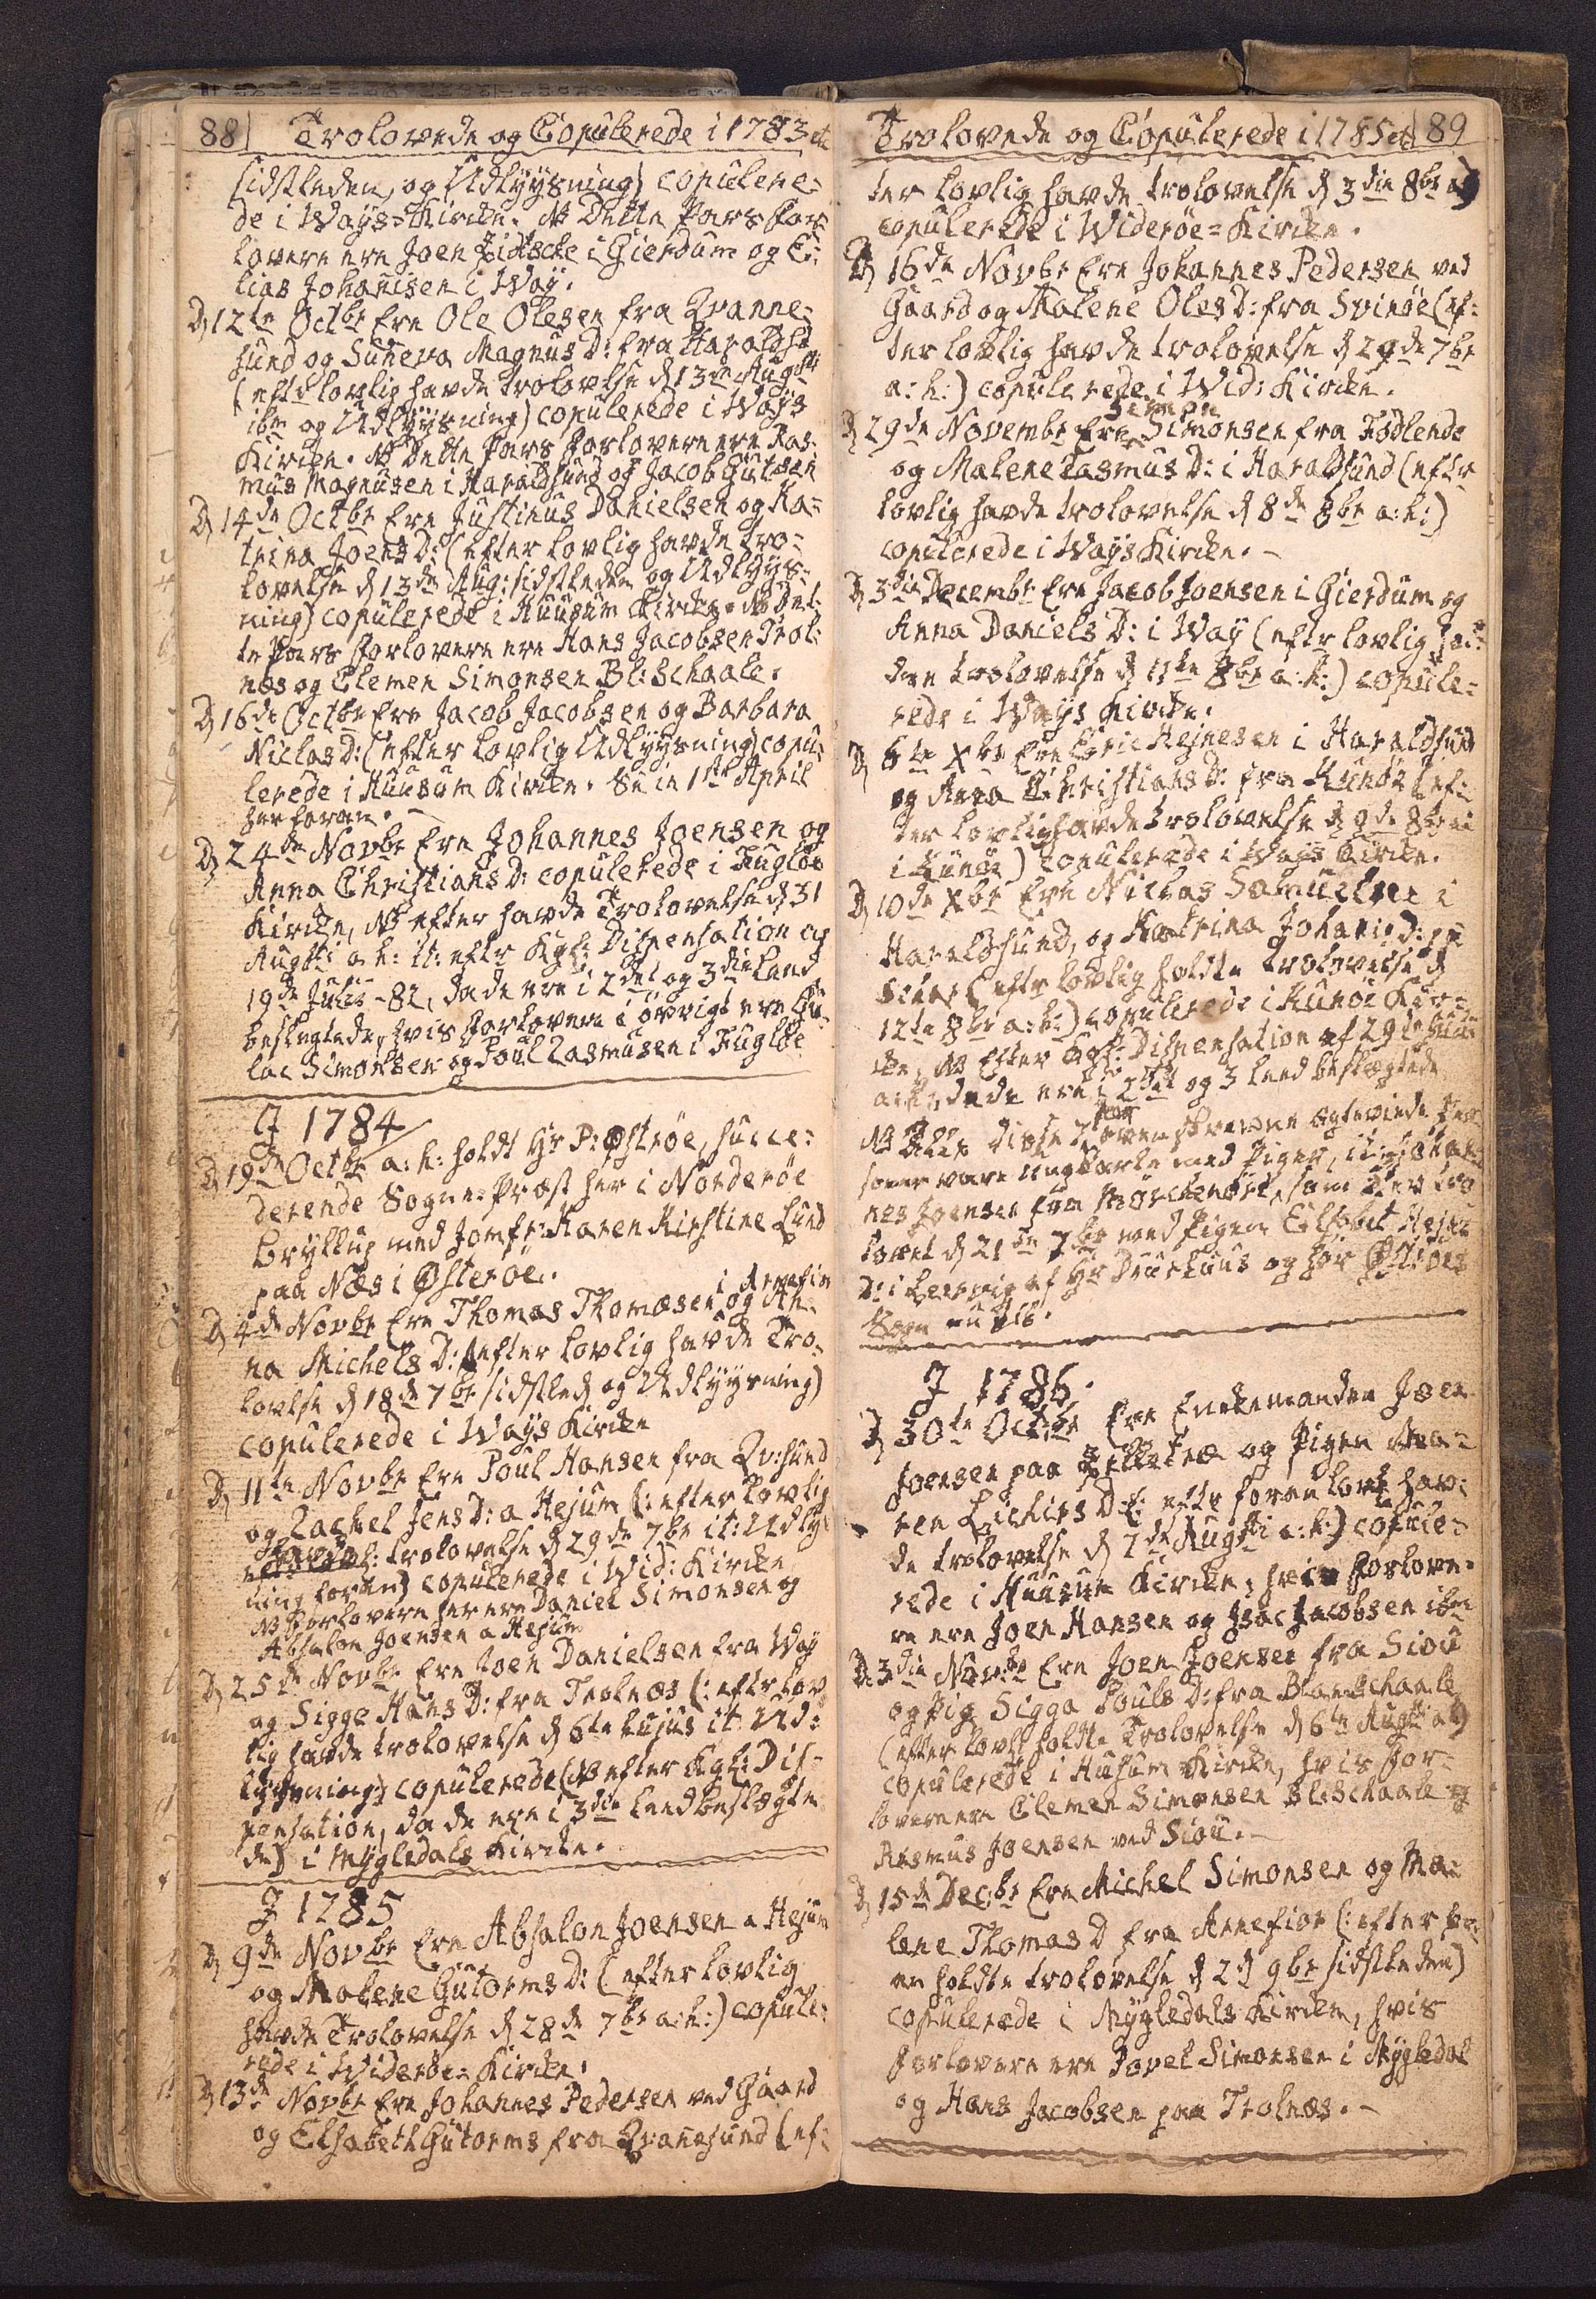 88 Trolovede og Copulerede i 1783 etc
sidstleden, og Udlyysning) copulere=
de i Ways=Kircke. NB Dette Pars for=
lovere ere Joen i Gierdum og E=
lias Johanisen i Way.
D 12te Octbr ere Ole Olesen fra Qvanne=
sund og Sunneva Magnus D: fra Haraldsd
(efter lovlig havde trolovelse d 13de Augusti
ibm og Udlyysning) copulerede i Ways
Kircken. NB Dette Pars forlovere ere Ras=
mus Magnusen i Haraldsund og Jacob Gutesen
D 14de Octbr ere Justinus Danielsen og Ka=
trina Joens D: (efter lovlig havde tro=
lovelse d 13de Aug: sidstleden og Udlyys=
ning) copulerede i Huusum Kircke. NB Det=
te Pars forlovere ere Hans Jacobsen Trol=
næs og Clemen Simonsen Bl: Schaale.
D 16de Octbr ere Jacob Jacobsen og Barbara
Niclas D: (efter lovlig Udlyysning) copu=
lerede i Huusum Kircke. 1te April
her foran. –
D 24de Novbr ere Johannes Joensen og
Anna Christians D: copulerede i Fugløe
Kircke, NB efter havde Trolovelse d 31
Augsti a. h: it: efter Kgl: Dispensation af
19de Julii – 82, da de ere i 2det og 3die Leed
beslegtede, hvis forlovere i øvrigt ere
Simonsen og Poul Rasmusen i Fugløe
I 1784
D 19de Octbr a: h: holdt Hr P: Østrøe, succe=
derende Sogne=Præst her i Norderøe
Bryllup med Jomfr: Karen Kirstine Lund
paa Næs i Østerøe.
i Arnefior
D 4de Novbr ere Thomas Thomæsen og An=
na Michels D: (efter lovlig havde Tro=
lovelse d 18de 7br sidstled og Udlyysning)
copulerede i Ways Kircke
D 11te Novbr ere Poul Hansen fra Qv:sund
og Rachel Jens D: a Hejum (: efter lovlig
trolovelse d 29de 7br it: Udlys=
ning foran) copulerede i Wid: Kircke
NB Forlovere her ere Daniel Simonsen og
Absalon Joensen a Hejum
D 25de Novbr ere Joen Danielsen fra Way
og Sigge Hans D: fra Trolnæs (: efter lov
lig havde trolovelse d 6te hujus it: Ud=
lyysning) copulerede (NB efter Kgl: Dis=
pensation, da de ere i 3die Leed beslægte
de) i Mygledals Kircke.
I 1785
D 9de Novbr ere Absalon Joensen a Hejum
og Malene Gutorms D: (efter lovlig
havde Trolovelse d 28de 7br a: h:) copule=
rede i Widerøe=Kircke.
D 13de Novbr ere Johannes Pedersen ved Gaard
og Elsabeth Gutorms fra Qvanesund (ef=
Trolovede og Copulerede i 1785 etc 89
ter lovlig havde trolovelse d 3die 8br a:)
copulerede i Widerøe=Kircke.
D 16de Novbr ere Johannes Pedersen ved
Gaard og Malene Oles D: fra Svinøe (ef=
ter lovlig havde trolovelse d 29de 7br
a: h:) copulerede i Wid: Kircke.
D 29de Novembr ere Simonsen fra Fødlende
og Malene Rasmus D: i Haraldsund (efter
lovlig havde trolovelse d 8de 8br a: h:)
copulerede i Ways Kircke. –
D 3die Decembr ere Jacob Joensen i Gierdum og
Anna Daniels D: i Way (efter lovlig
trolovelse d 11te 8br a: h:) copule=
rede i Ways Kircke.
D 6te Xbr ere Eric Hejnesen i Haraldsund
og Anna Christians D: fra Kunøe (ef=
ter lovlig havde trolovelse d 9de 8br
i Kunøe) copulerede i Ways Kircke.
D 10de Xbr ere Niclas Samuelsen i
Haraldsund, og Katrina Johanis D:
(efter lovlig holdte trolovelse d
12te 8br a: h:) copulerede i Kunøe Kir=
cke, NB efter Kgl: Dispensation af 29de
da de ere i 2det og 3 leed beslægtede
NB Alle disse ovenskrevne Egteviede Per
soner vare ungkarle med Piger, it: Johan
nes Joensen, som blev tro
lovet d 21de 7br med Pigen Elsebet Hejnes
D: i Leervig af Hr og hør Østrøes
Sogn til.
I 1786.
D 30te Octbr ere Enckemanden Joen
Joensen paa og Pigen Ma=
ren D: (: efter foran lovl: hav=
de trolovelse d 7de Augsti a: h:) copule=
rede i Huusum Kircke, hvis forlove=
re ere Joen Hansen og Isac Jacobsen ibm
D 3die Novbr ere Joen Joensen fra Siou
og Pig Sigga Pouls D: fra Blanschaale
(efter lovl: holdte Trolovelse d 6te Augsti a:)
copulerede i Husum Kircke, hvis for=
lovere ere Clemen Simonsen Bl:Schaale og
Rasmus Joensen ved Siou. –
D 15de Decbr ere Michel Simonsen og Ma=
lene Thomas D fra Arnefior (: efter for=
an holdte trolovelse d 2 d 9br sidstleden)
copulerede i Mygledals Kircke, hvis
forlovere ere Povel Simonsen i Mygledal
og Hans Jacobsen paa Trolnæs. –